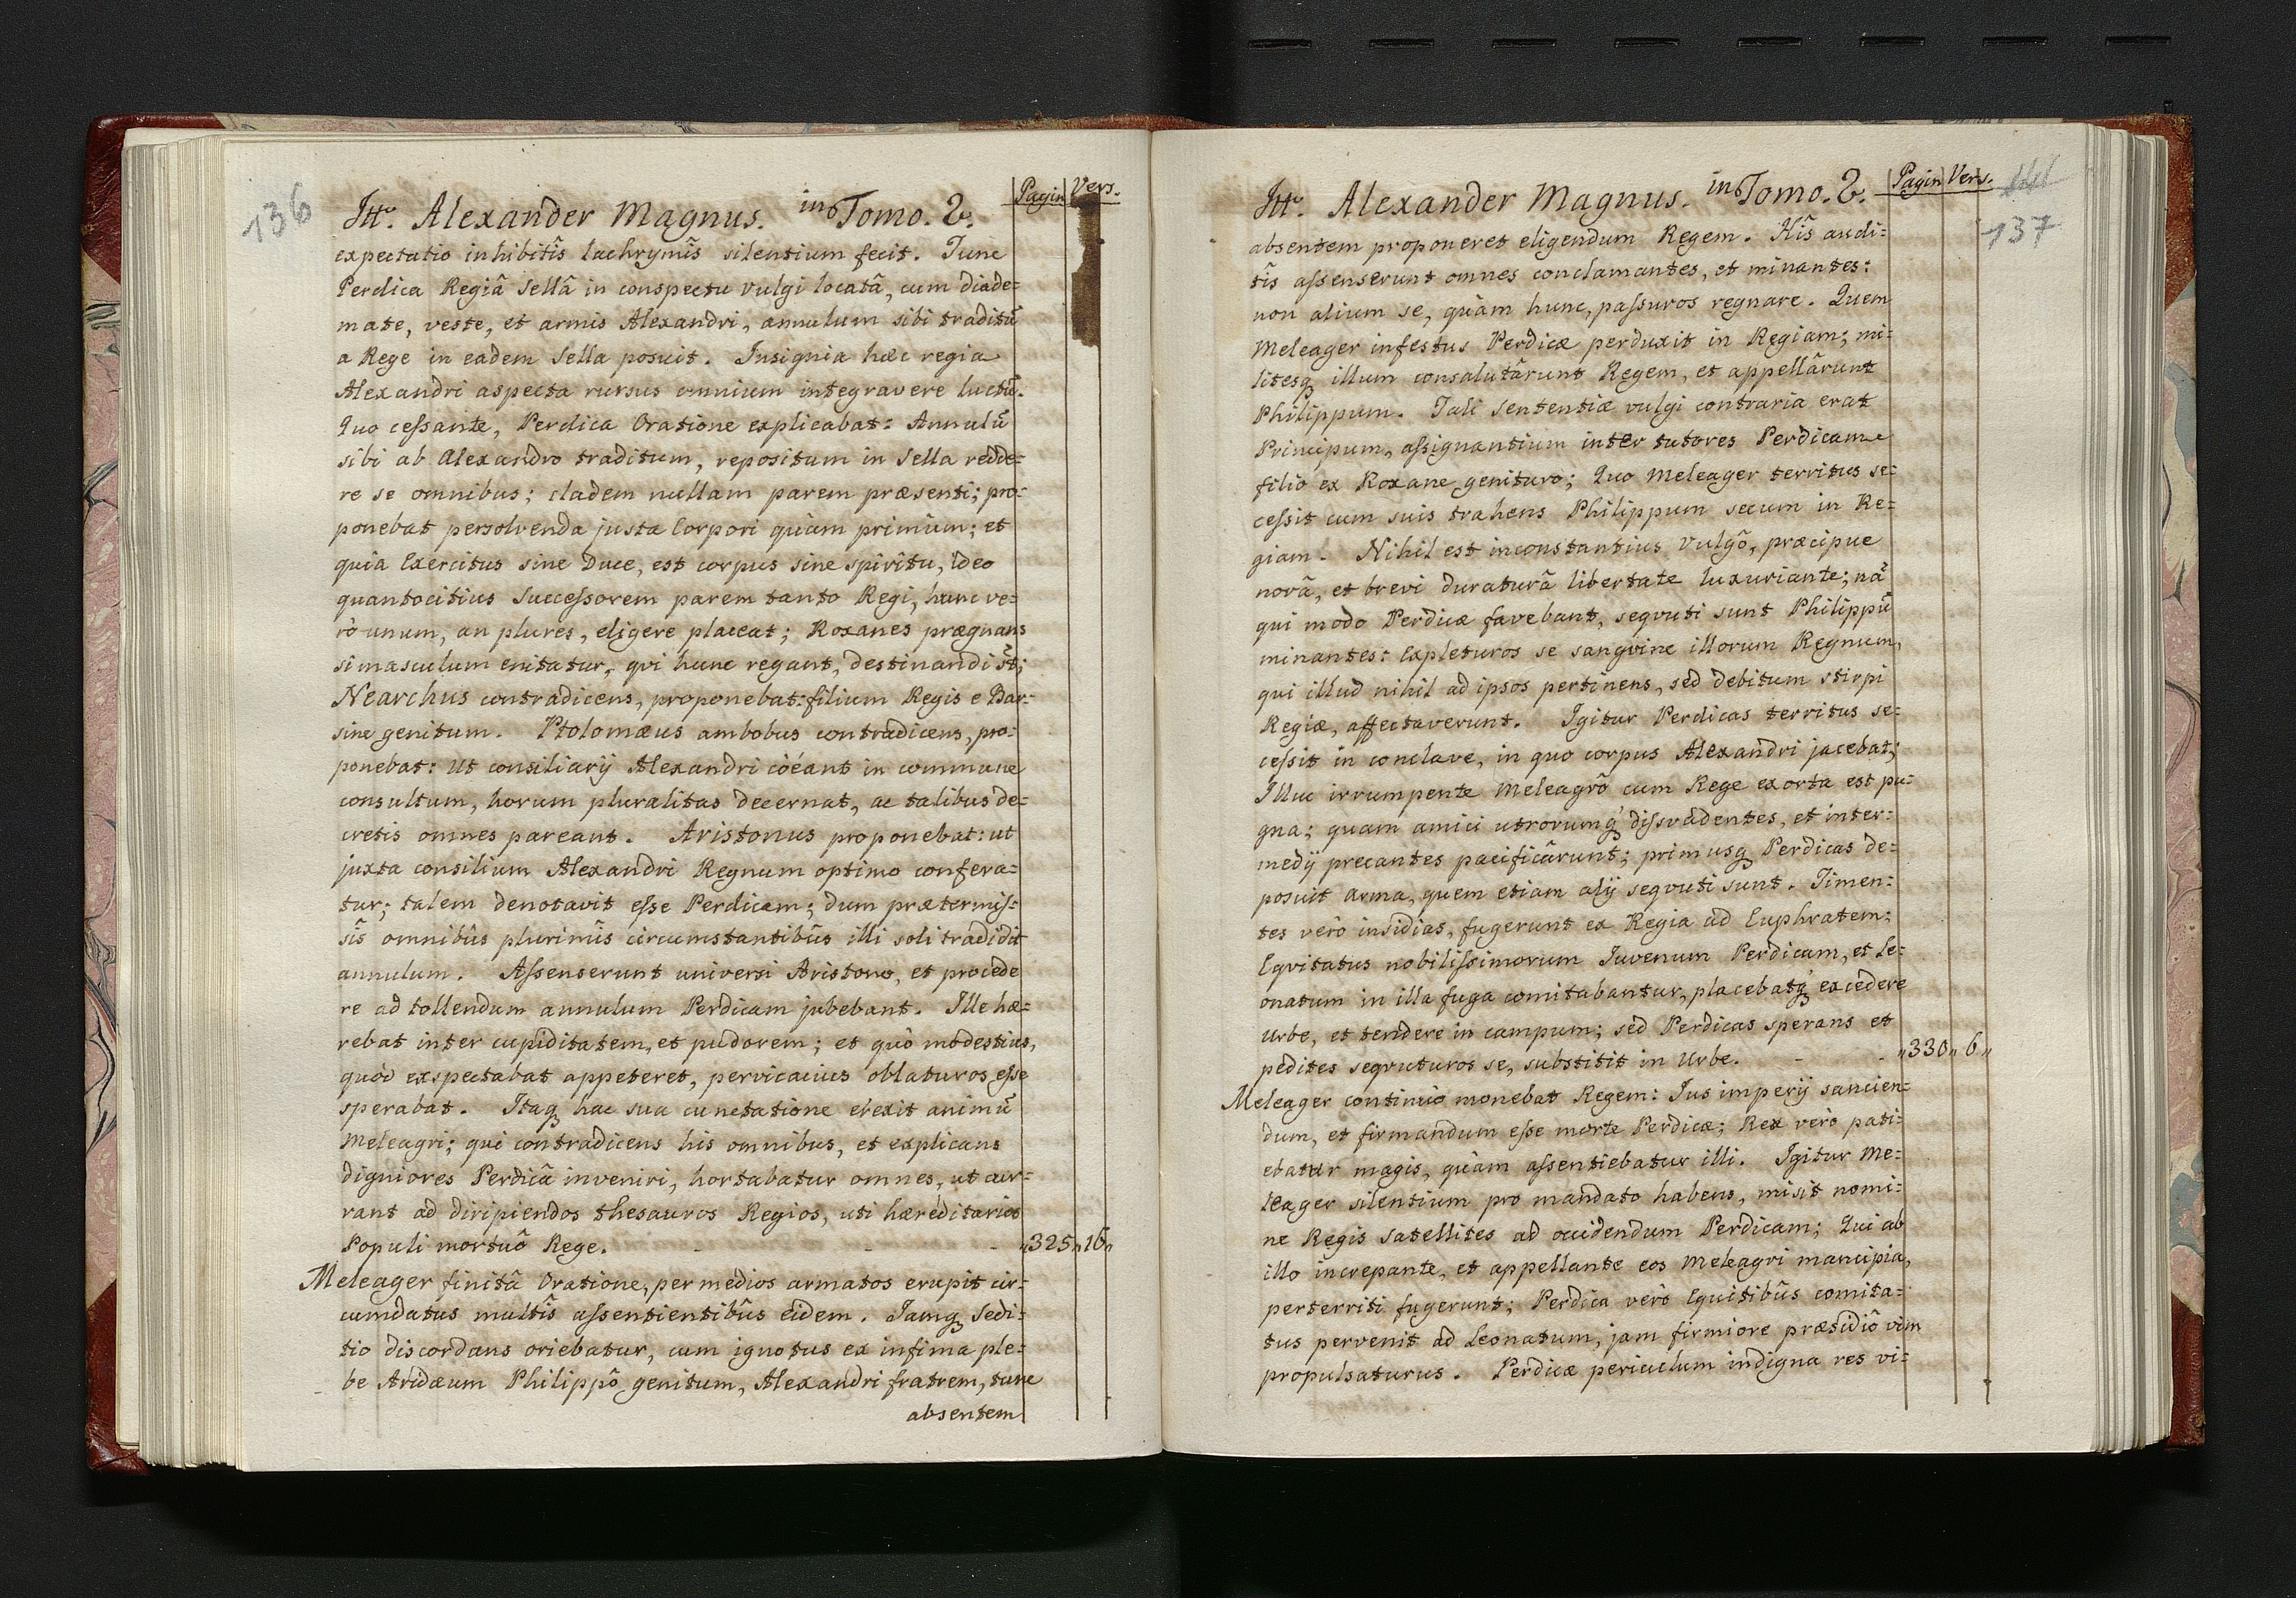 136
Itt. Alexander Magnus. in Tomo. 2. Pagin Vers.
expectatio inhibitîs lachrymîs silentium fecit. Tunc
Perdica Regiâ Sellâ in conspectu vulgi locatâ, cum diade=
mate, veste, et armis Alexandri, annulum sibi traditū
a Rege in eadem Sella posuit. Insignia hæc regia
Alexandri aspecta rursus omnium integravere luctū.
Quo cessante, Perdica Oratione explicabat: Annulū
sibi ab Alexandro traditum, repositum in Sella redde=
re se omnibus; cladem nullam parem præsenti; pro=
ponebat persolvenda justa Corpori quàm primùm; et
quia Exercitus sine Duce, est corpus sine spiritu, ideo
quantocitius Successorem parem tanto Regi, hunc ve=
rò unum, an plures, eligere placeat; Roxanes prægnans
si masculum enitatur, qvi hunc regant, destinandi s̄t;
Nearchus contradicens, proponebat: filium Regis e Bar=
sine genitum. Ptolomæus ambobus contradicens, pro=
ponebat: Ut consiliarij Alexandri cöeant in commune
consultum, horum pluralitas decernat, ac talibus de=
cretis omnes pareant. Aristonus proponebat: ut
juxta consilium Alexandri Regnum optimo confera=
tur; talem denotavit esse Perdicam; dum prætermis=
sîs omnibûs plurimîs circumstantibûs illi soli tradidit
annulum. Assenserunt universi Aristono, et procede
re ad tollendum annulum Perdicam jubebant. Ille hæ=
rebat inter cupiditatem, et pudorem; et quò modestius,
quòd exspectabat appeteret, pervicacius oblaturos esse
sperabat. Itaq; hac sua cunctatione erexit animū
Meleagri; qui contradicens his omnibus, et explicans
digniores Perdicâ inveniri, hortabatur omnes, ut cur=
rant ad diripiendos thesauros Regios, uti hæreditarios
Populi mortuô Rege. - - - „325„ 16„
Meleager finitâ Oratione, per medios armatos erupit cir=
cumdatus multîs assentientibûs eidem. Jamq; Sedi=
tio discordans oriebatur, cum ignotus ex infima ple=
be Aridæum Philippô genitum, Alexandri fratrem, tunc
absentem
Itt. Alexander Magnus. in Tomo. 2. Pagin Vers.
137
absentem proponeret eligendum Regem. Hîs audi=
tîs assenserunt omnes conclamantes, et minantes:
non alium se, quàm hunc, passuros regnare. Quem
Meleager infestus Perdicæ perduxit in Regiam; mi=
litesq; illum consalutârunt Regem, et appellârunt
Philippum. Tali Sententiæ vulgi contraria erat
Principum, assignantium inter tutores Perdicam
filio ex Roxane genituro; Quo Meleager territus se=
cessit cum suis trahens Philippum secum in Re=
giam. Nihil est inconstantius Vulgô, præcipue
novâ, et brevi duraturâ libertate luxuriante; nā
qui modo Perdicæ favebant, seqvuti sunt Philippū
minantes: Expleturos se sangvine illorum Regnum,
qui illud nihil ad ipsos pertinens, sed debitum stirpi
Regiæ, affectaverunt. Igitur Perdicas territus se=
cessit in conclave, in quo corpus Alexandri jacebat;
Illuc irrumpente Meleagrô cum Rege exorta est pu=
gna; quam amici utrorumq; dissvadentes, et inter=
medij precantes pacificârunt; primusq; Perdicas de=
posuit arma, quem etiam alij seqvuti sunt. Timen=
tes verò insidias, fugerunt ex Regia ad Euphratem;
Eqvitatus nobilissimorum Juvenum Perdicam, et Le=
onatum in illa fuga comitabantur, placebatq; excedere
Urbe, et tendere in campum; sed Perdicas sperans et
pedites seqvuturos se, substitit in Urbe. - - „330„ 6„
Meleager continuò monebat Regem: Jus imperij sancien=
dum, et firmandum esse morte Perdicæ; Rex verò pati=
ebatur magis, quàm assentiebatur illi. Igitur Me=
leager silentium pro mandato habens, misit nomi=
ne Regis satellites ad occidendum Perdicam; Qui ab
illo increpante, et appellante eos Meleagri mancipia,
perterriti fugerunt; Perdica verò Equitibûs comita=
tus pervenit ad Leonatum, jam firmiore præsidiô vim
propulsaturus. Perdicæ periculum indigna res vi=